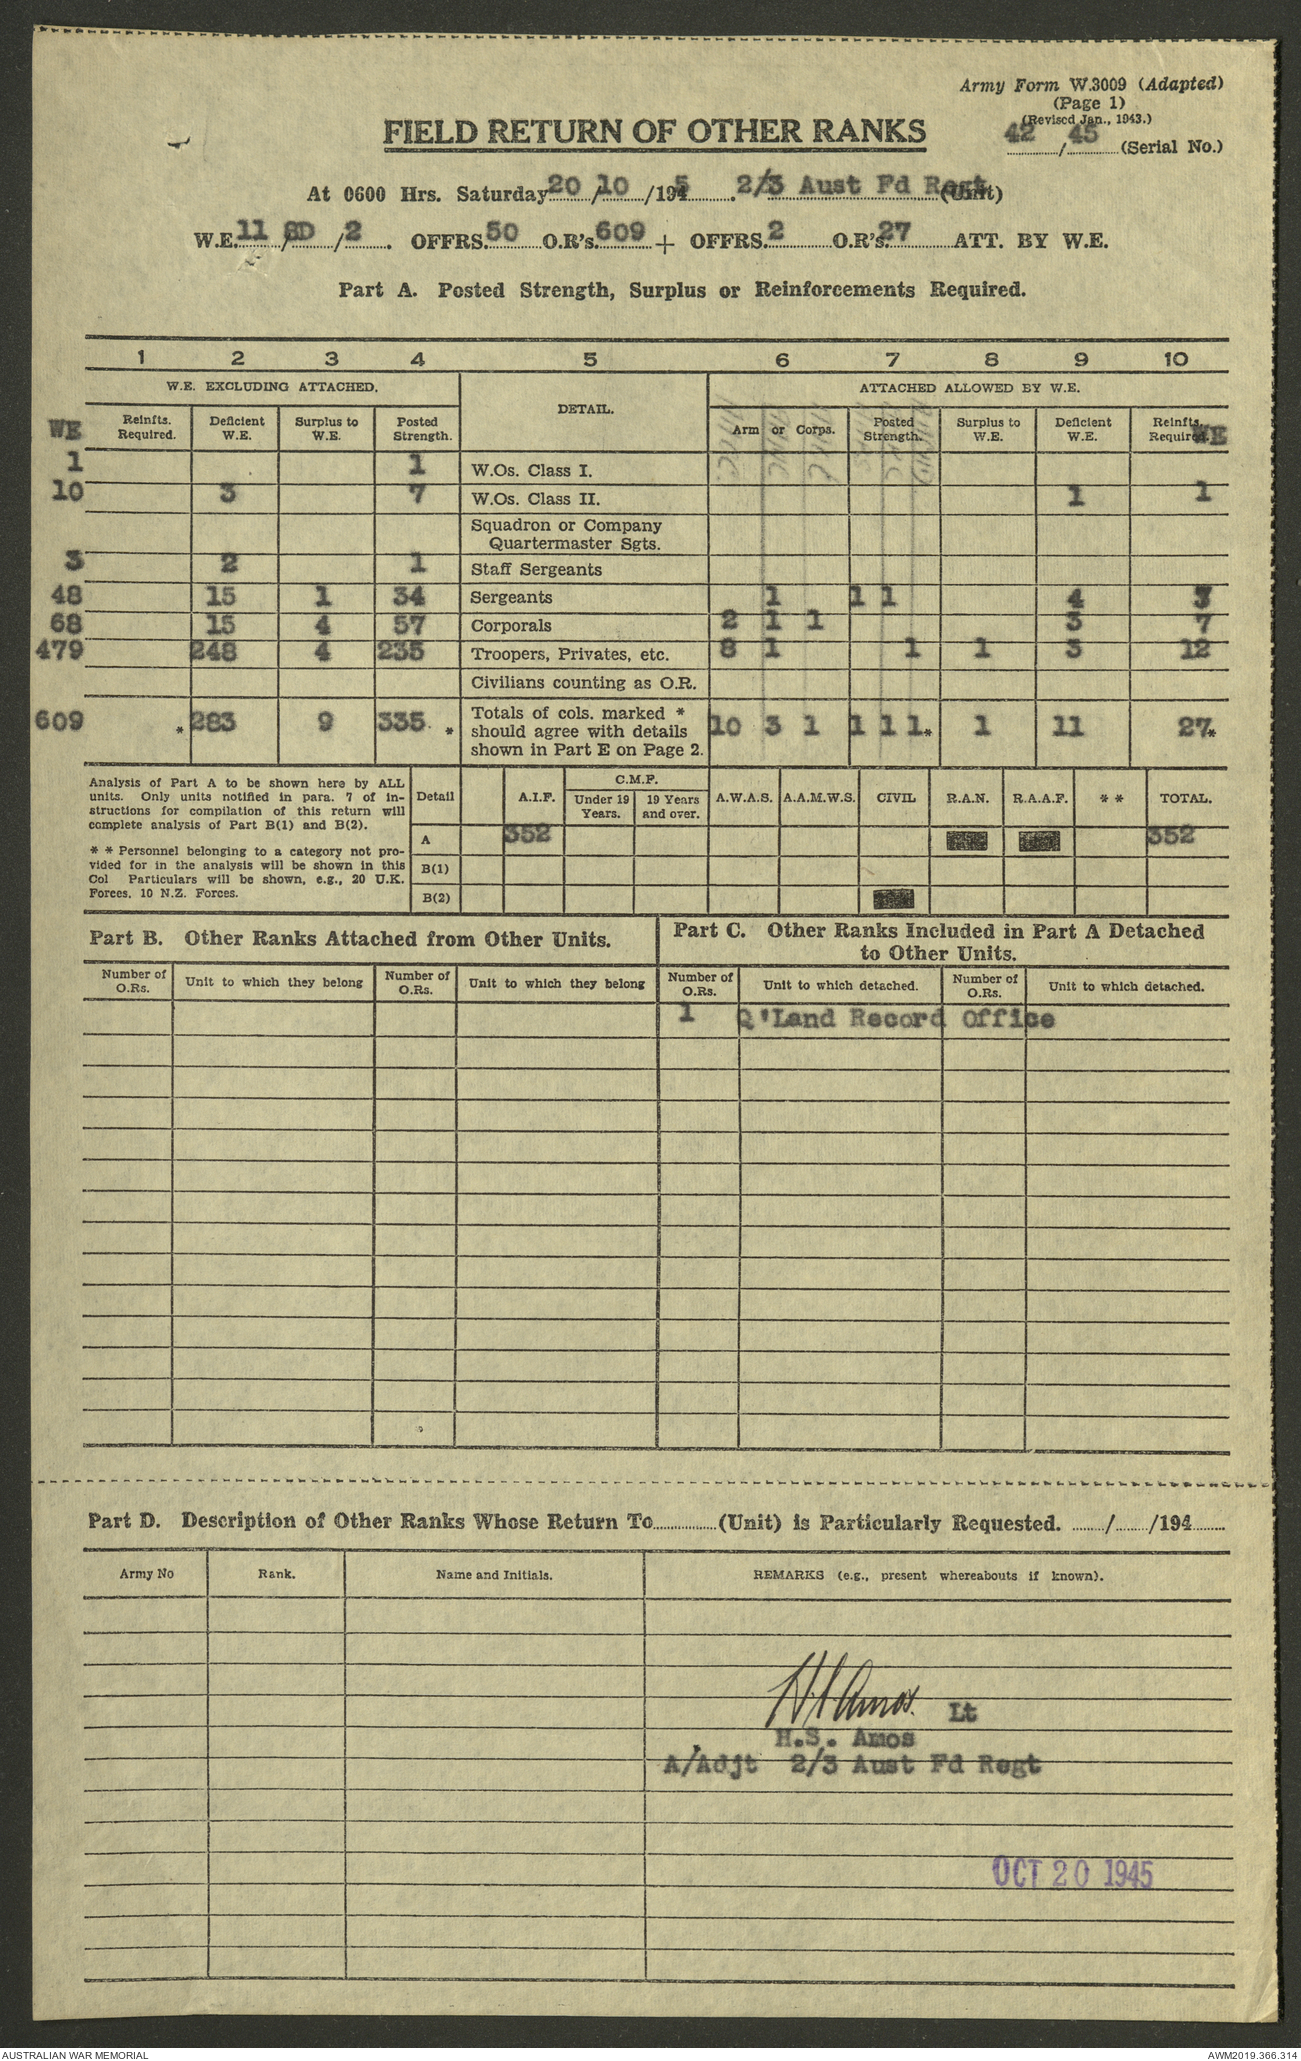 Army Form W.3009 (Adapted)
(Page 1)
(Revised Jan., 1943.)
FIELD RETURN OF OTHER RANKS
42 / 45 (Serial No.)
At 0600 Hrs. Saturday 20 / 10 /1945. 2/3 Aust Fd Regt (Unit)
W.E. 11 / 8D / 2 . OFFRS. 50 O.R's. 609 + OFFRS. 2 O.R's. 27 ATT. BY W.E.
Part A. Posted Strength, Surplus or Reinforcements Required.
1 2 3 4 5 6 7 8 9 10
W.E. EXCLUDING ATTACHED. DETAIL. ATTACHED ALLOWED BY W.E.
WE Reinfts. Required. Deficient W.E. Surplus to W.E. Posted Strength. Arm or Corps. Posted Strength. Surplus to W.E. Deficient W.E. Reinfts. Required. WE
1 1 W.Os. Class I.
10 3 7 W.Os. Class II. 1 1
Squadron or Company
Quartermaster Sgts.
3 2 1 Staff Sergeants
48 15 1 34 Sergeants 1 1 1 4
68 15 4 57 Corporals 2 1 1 3 7
479 248 4 235 Troopers, Privates, etc. 8 1 1 1 3 12
Civilians counting as O.R.
609 * 283 9 335. * Totals of cols. marked * should agree with details shown in Part E on Page 2. 10 3 1 1 1 1* 1 11 27*
Analysis of Part A to be shown here by ALL
units. Only units notified in para. 7 of in-
structions for compilation of this return will
complete analysis of Part B(1) and B(2).
* * Personnel belonging to a category not pro-
vided for in the analysis will be shown in this
Col Particulars will be shown, e.g., 20 U.K.
Forces, 10 N.Z. Forces.
Detail A.I.F. C.M.F. Under 19 Years. 19 Years and over. A.W.A.S. A.A.M.W.S. CIVIL R.A.N. R.A.A.F. * * TOTAL.
A 352 352
B(1)
B(2)
Part B. Other Ranks Attached from Other Units.
Part C. Other Ranks Included in Part A Detached
to Other Units.
Number of O.Rs. Unit to which they belong Number of O.Rs. Unit to which they belong Number of O.Rs. Unit to which detached. Number of O.Rs. Unit to which detached.
1 Q'Land Record Office
Part D. Description of Other Ranks Whose Return To.............(Unit) is Particularly Requested. ......./......./194.......
Army No Rank. Name and Initials. REMARKS (e.g., present whereabouts if known).
H S Amos. Lt
H.S. Amos
A/Adjt 2/3 Aust Fd Regt
OCT 20 1945
AUSTRALIAN WAR MEMORIAL AWM2019.366.314